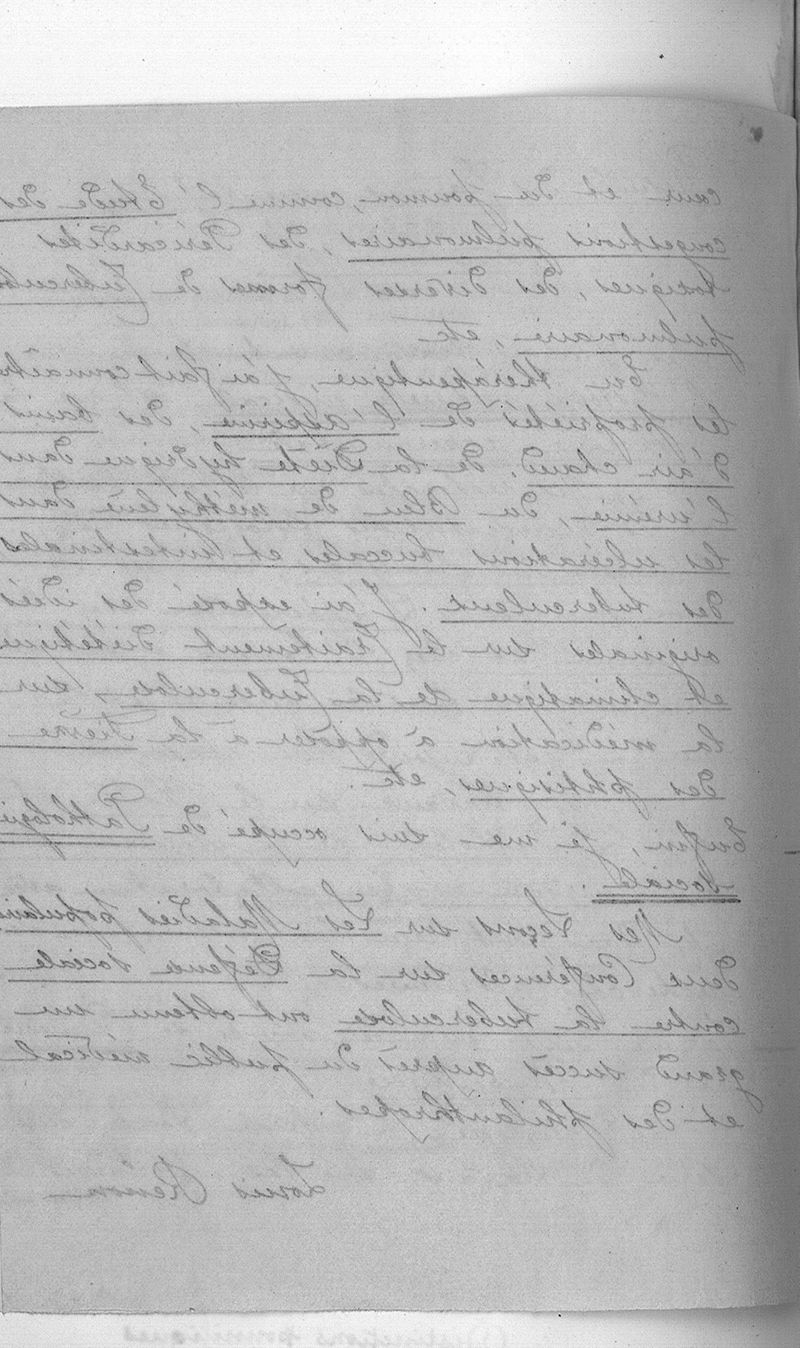 cœur et du poumon, comme l'Étude des
congestions pulmonaires, des Péricardites
, des diverses formes de Tubercul
pulmonaire, etc
En thérapeutique, j'ai fait connaître
les propriétés de l'aspirine, des bains
d'air chaud, de la Diète hydrique dans
l'urémie, du Bleu de méthylène dans
les ulcérations buccales et intestinales
des tuberculeux. J'ai exposé des idées
originales sur le Traitement diététique
et climatique de la Tuberculose, sur
la médication à opposer à la Fièvre
des phtisiques, etc.
Enfin, je me suis occupé de Pathologie
sociale.
Mes Leçons sur Les Maladies populaires
deux Conférences sur la Défense sociale
contre la tuberculose ont obtenu un
grand succès auprès du public médical
et des philanthropes.
Louis Rénon